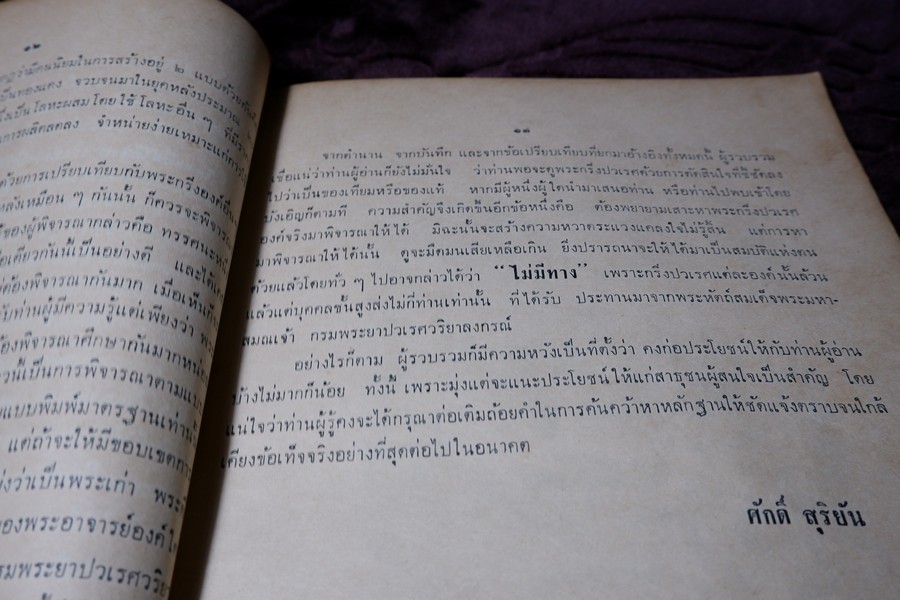 ๑๒
ในการสร้างอยู่ ๒ แบบด้วยกัน
เป็นทองแดง จวบจนมาในยุคหลังประมาณ
เป็นโลหะผสมโดยใช้โลหะอื่น ๆ ที่มี
การผลิตลดลง จำหน่ายง่ายเหมาะแก่
ด้วยการเปรียบเทียบกับพระกริ่งองค์อื่น
หลังเหมือน ๆ กันนั้น ก็ควรจะพิจาร
ของผู้พิจารณากล่าวคือ ทรรศนะ
เดียวกันนี้เป็นอย่างดี และได้
ต้องพิจารณากันมาก เมื่อเห็น
กับท่านผู้มีความรู้แต่เพียงว่า
ต้องพิจารณาศึกษากันมาก
นี้เป็นการพิจารณาตามแบบ
แบบพิมพ์มาตรฐานเท่านั้น
แต่ถ้าจะให้มีขอบเขต
ว่าเป็นพระเก่า
ของพระอาจารย์องค์ใ
กรมพระยาปวเรศวริย
๑๓
จากตำนาน จากบันทึก และจากข้อเปรียบเทียบที่ยกมาอ้างอิงทั้งหมดนี้ ผู้รวบรวม
เชื่อแน่ว่าท่านผู้อ่านก็ยังไม่มั่นใจ ว่าท่านพอจะดูพระกริ่งปวเรศด้วยการตัดสินใจที่ชี้ชัดลง
ไปว่าเป็นของเทียมหรือของแท้ หากมีผู้หนึ่งผู้ใดนำมาเสนอท่าน หรือท่านไปพบเข้าโดย
บังเอิญก็ตามที ความสำคัญจึงเกิดขึ้นอีกข้อหนึ่งคือ ต้องพยายามเสาะหาพระกริ่งปวเรศ
องค์จริงมาพิจารณาให้ได้ มิฉะนั้นจะสร้างความหวาดระแวงแคลงใจไม่รู้สิ้น แต่การหา
มาพิจารณาให้ได้นั้น ดูจะมืดมนเสียเหลือเกิน ยิ่งปรารถนาจะให้ได้มาเป็นสมบัติแห่งตน
ด้วยแล้วโดยทั่ว ๆ ไปอาจกล่าวได้ว่า "ไม่มีทาง" เพราะกริ่งปวเรศแต่ละองค์นั้นล้วน
แล้วแต่บุคคลชั้นสูงส่งไม่กี่ท่านเท่านั้น ที่ได้รับ ประทานมาจากพระหัตถ์สมเด็จพระมหา-
สมณเจ้า กรมพระยาปวเรศวริยาลงกรณ์
อย่างไรก็ตาม ผู้รวบรวมก็มีความหวังเป็นที่ตั้งว่า คงก่อประโยชน์ให้กับท่านผู้อ่าน
บ้างไม่มากก็น้อย ทั้งนี้ เพราะมุ่งแต่จะแนะประโยชน์ให้แก่สาธุชนผู้สนใจเป็นสำคัญ โดย
แน่ใจว่าท่านผู้รู้คงจะได้กรุณาต่อเติมถ้อยคำในการค้นคว้าหาหลักฐานให้ชัดแจ้งตราบจนใกล้
เคียงข้อเท็จจริงอย่างที่สุดต่อไปในอนาคต
ศักดิ์ สุริยัน